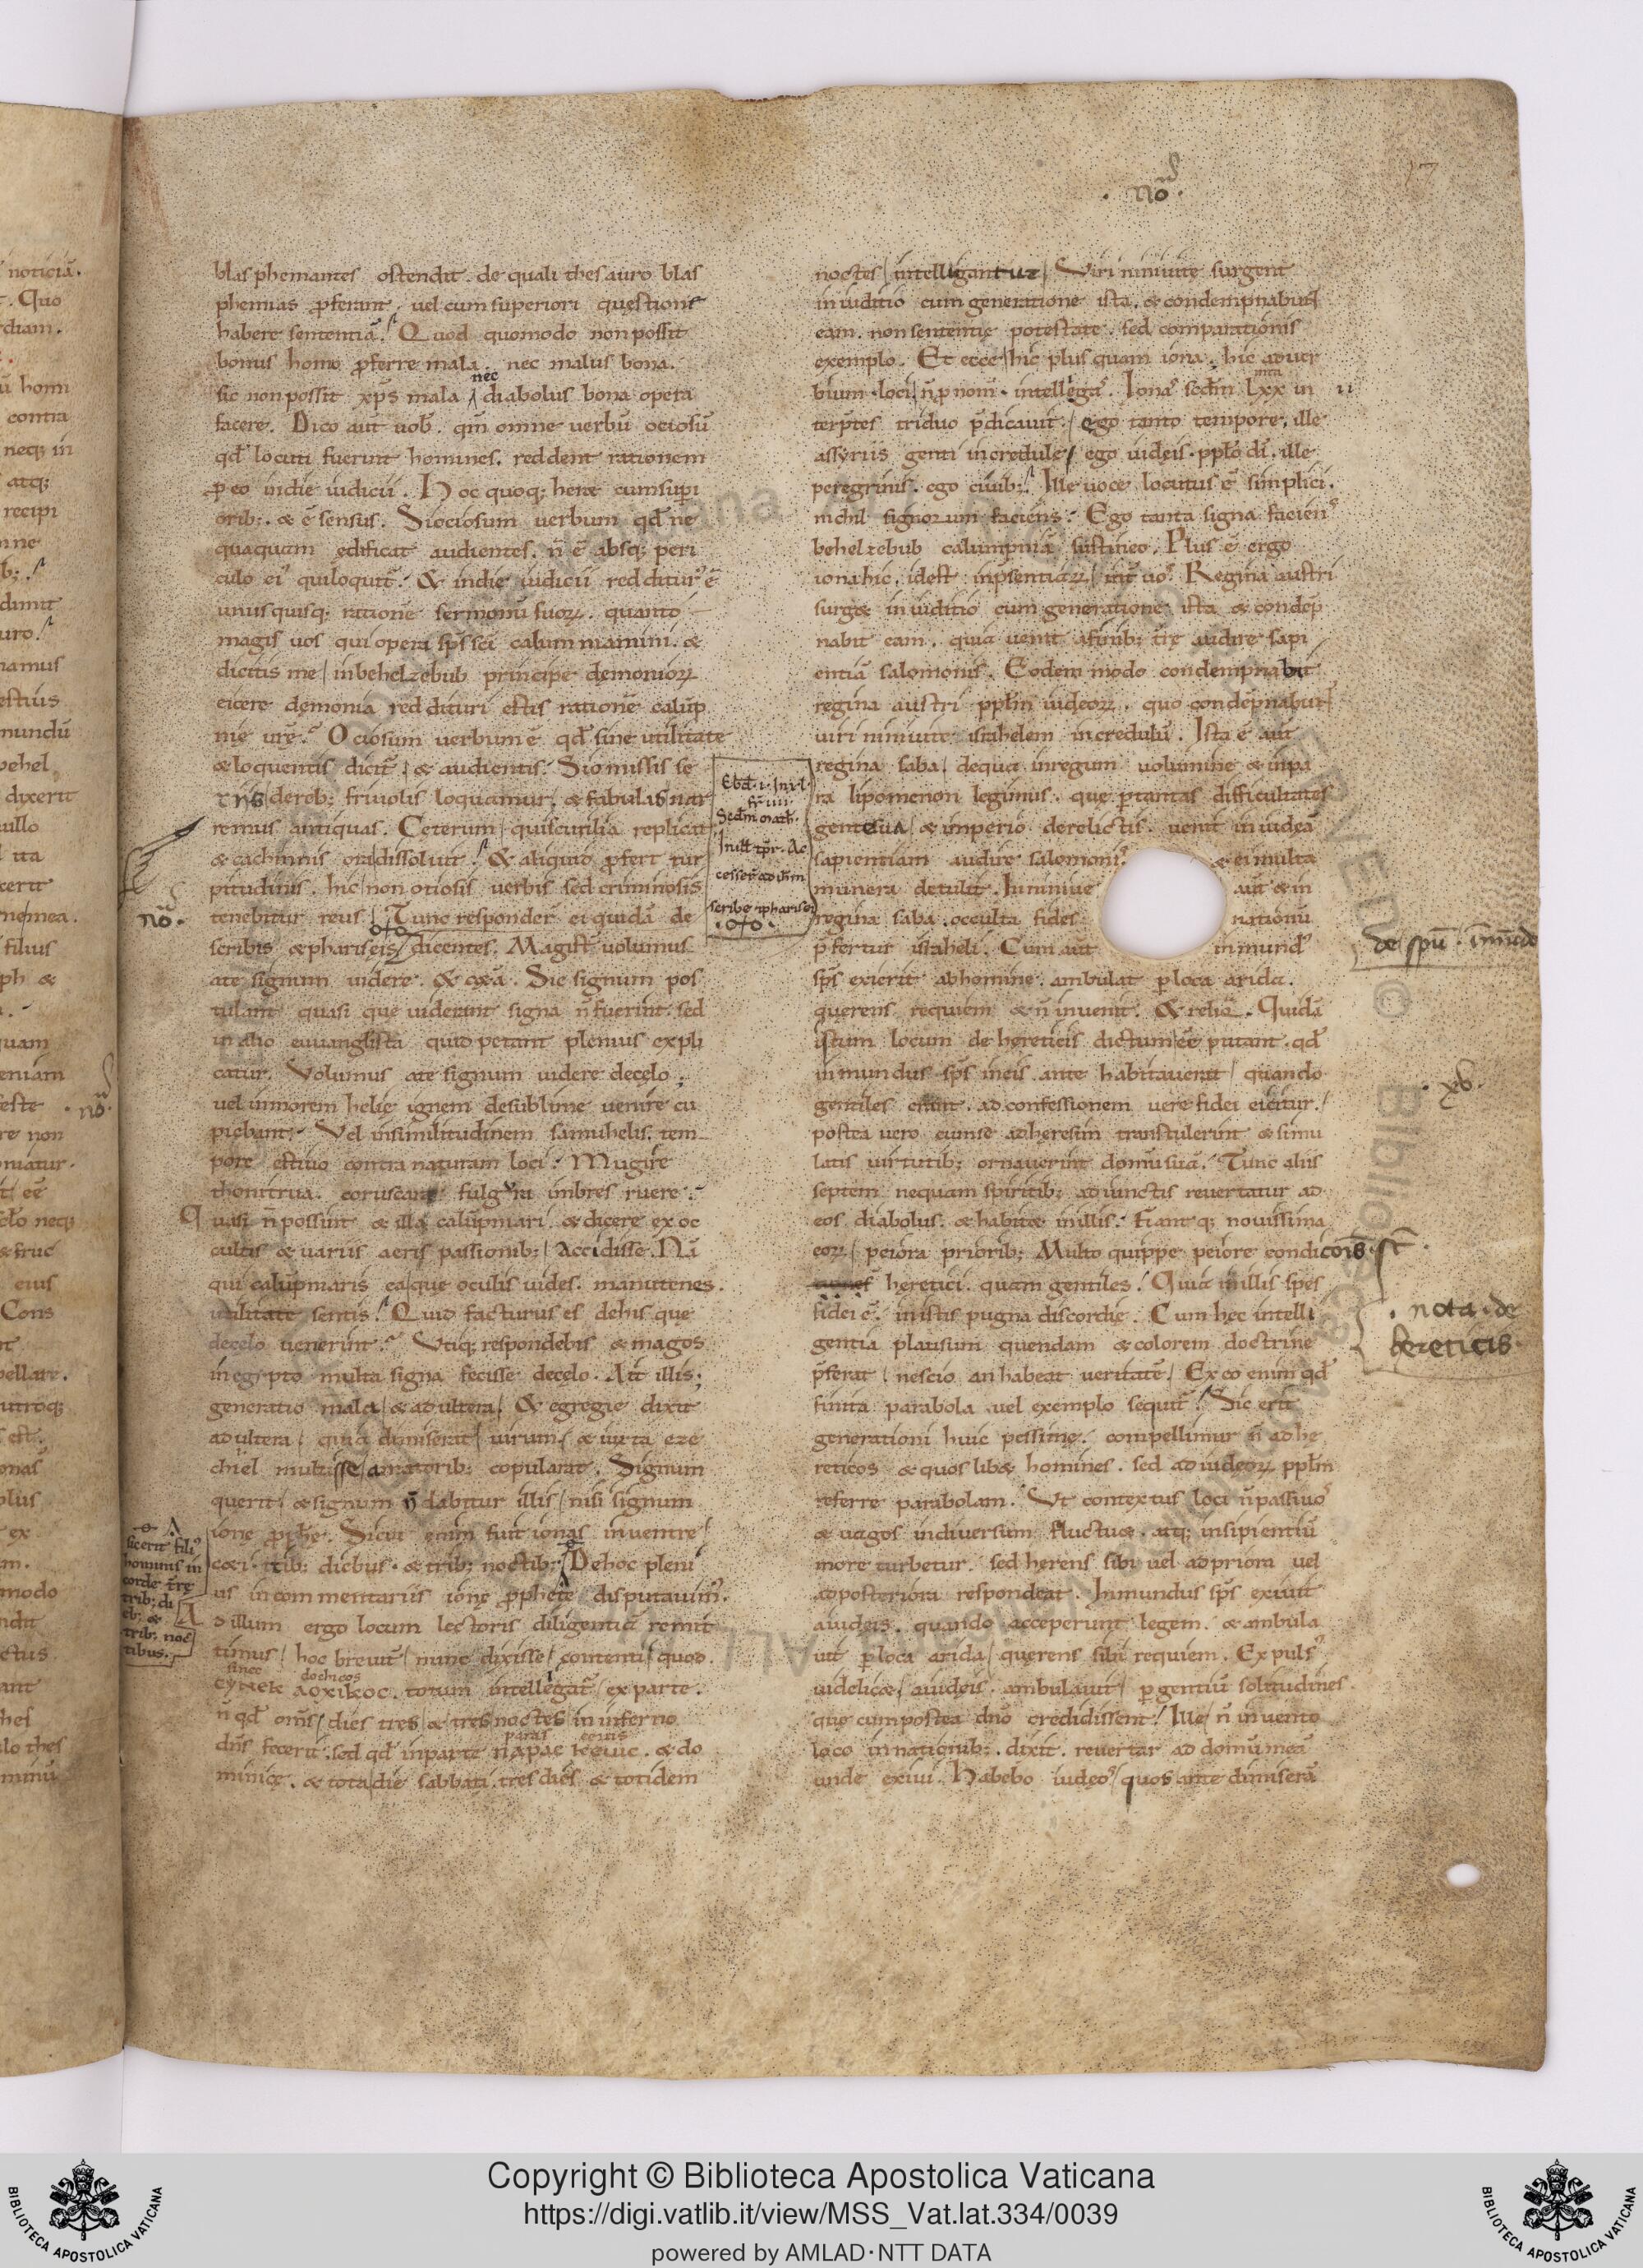 17
· nō ·
blasphemantes ostendit. de quali thesauro blas
phemias p̄ferant. uel cum superiori quęstione
habere sententiā. Quod quomodo non possit
bonus homo p̄ferre mala. nec malus bona.
sic non possit xp̄s mala nec diabolus bona opera
facere. Dico aut̄ uob̄. qm̄ omne uerbū ociosū
qd̄ locuti fuerint homines. reddent rationem
p eo in die iudicii. Hoc quoq; heret cum supi
orib;. & ē sensus. Si ociosum uerbum qd̄ ne
quaquam edificat audientes. n̄ ē absq; peri
culo ei' qui loquit̄. & in die iudicii redditur' ē
unusquisq; rationē sermonū suoꝝ. quanto
magis uos qui opera sp̄s sc̄i calumniamini. &
dicitis me in behelzebub principe demonioꝝ
eicere demonia reddituri estis rationē calūp
nię ur̄ę. Ociosum uerbum ē qd̄ sine utilitate
& loquentis dicit̄ & audientis. Si omissis se
riis de reb; friuolis loquamur. & fabulas nar
remus antiquas. Ceterum qui scurilia replicat
& cachinnis ora dissoluit. & aliquid p̄fert tur
pitudinis. hic non otiosis uerbis sed criminosis
tenebitur reus. Tunc responder̄ ei quidā de
scribis & phariseis dicentes. Magist̄ uolumus
a te signum uidere. & cet̄a. Sic signum pos
tulant quasi que uiderant signa n̄ fuerint. sed
in alio euuanglista quid petant plenius expli
catur. Volumus a te signum uidere de cęlo.
uel in morem helie ignem de sublime uenire cu
piebant. Vel in similitudinem samuhelis. tem
pore estiuo contra naturam loci. Mugire
thonitrua. coruscare fulgura imbres ruere.
Quasi n̄ possint & illa calūpniari. & dicere ex oc
cultis & uariis aeris passionib; accidisse. Nā
qui calūpniaris ea que oculis uides. manu tenes.
utilitate sentis. Quid facturus es de his que
de cęlo uenerint. Vtiq; respondebis & magos
in egypto multa signa fecisse de cęlo. Ait illis;
generatio mala & adultera. & egregie dixit
adultera. quia dimiserat uirum. & iuxta eze
chiel multisse amatorib; copularat. Signum
querit & signum n̄ dabitur illis nisi signum
ionę p̄phę. Sicut enim fuit ionas in uentre
coeti. trib; diebus. & trib; noctib; De hoc pleni
us in commentariis ionę p̄phete disputauim'.
Ad illum ergo locum lectoris diligentiā remit
timus hoc breuit̄ nunc dixisse contenti quod
sinec dochicos
CYNEK ΔOXIKOC. totum intellegat̄ ex parte.
n̄ qd̄ om̄s dies tres & tres noctes in inferno
dn̄s fecerit. sed qd̄ in parte ΠAPAC KEVIC. & do
minicę. & tota die sabbati. tres dies & totidem
Ebd̄. i. In xl.
fr̄. iiii.
Sedm̄ math̄.
In ill̄ tp̄r. Ac
cesser̄ ad ih̄m
scribe & pharisei
nō.
sic erit fili'
hominis in
corde trę
trib; di
eb; &
trib; noc
tibus.
noctes intelligantur. Viri niniuite surgent
in iuditio cum generatione ista. & condempnabunt
eam. non sententię potestate. sed comparationis
exemplo. Et ecce hic plus quam iona. hic aduer
bium loci n̄ p nom̄. intellega'. Iona' sedm̄ lxx in
terp̄tes triduo p̄dicauit. ego tanto tempore. ille
assyriis genti incredule. ego iudeis. ppl̄o dī. ille
peregrinis. ego ciuib;. Ille uoce locutus ē simplici.
nichil signorum faciens. Ego tanta signa facien'
behelzebub calumpniā sustineo. Plus ē ergo
iona hic. idest inp̄sentiaꝝ int̄ uo'. Regina austri
surget in iuditio cum generatione ista & condēp
nabit eam. quia uenit a finib; trę audire sapi
entiā salomonis. Eodem modo condempnabit
regina austri ppl̄m iudeoꝝ. quo condēpnabunt
uiri niniuite israhelem incredulū. Ista ē aut̄
regina saba de qua in regum uolumine & in pa
ra lipomenon legimus. que p tantas difficultates
gente sua & imperio derelictis. uenit in iudeā
sapientiam audire salomoni'. & ei multa
munera detulit. In niniue aut̄ & in
regina saba. occulta fides nationū
p̄fertur israheli. Cum aut̄ inmund'
sp̄s exierit ab homine. ambulat p loca arida.
querens requiem & n̄ inuenit. & reliq̄. Quidā
istum locum de hereticis dictum eē putant. qd̄
inmundus sp̄s in eis ante habitauerat quando
gentiles erant. ad confessionem uere fidei eicitur.
postea uero cum se ad heresim transtulerint & simu
latis uirtutib; ornauerint domū suā. Tunc aliis
septem nequam spiritib; adiunctis reuertatur ad
eos diabolus. & habitet in illis. Fiant q; nouissima
eoꝝ peiora priorib; Multo quippe peiore condicōis st̄.
heretici. quam gentiles. Quia in illis spes
fidei ē. in istis pugna discordie. Cum hęc intelli
gentia plausum quendam & colorem doctrine
p̄ferat. nescio an habeat ueritatē. Ex eo enim qd̄
finita parabola uel exemplo sequit̄. Sic erit
generationi huic pessime. compellimur n̄ ad he
reticos & quos libet homines. sed ad iudeoꝝ ppl̄m
referre parabolam. Vt contextus loci n̄ passiuo'
& uagos in diuersum fluctuet. atq; insipientiū
more turbetur. sed herens sibi uel ad priora uel
ad posteriora respondeat. Inmundus sp̄s exiuit
a iudeis. quando acceperunt legem. & ambula
uit p loca arida querens sibi requiem. Expuls'
uidelicet a iudeis. ambulauit p gentiū solitudines.
que cum postea dn̄o credidissent. Ille n̄ inuento
loco in nationib;. dixit. reuertar ad domū meā
unde exiui. Habebo iudeo' quos ante dimiserā
de spū. inmūdo
· nota · de
hereticis.
Copyright © Biblioteca Apostolica Vaticana
https://digi.vatlib.it/view/MSS_Vat.lat.334/0039
powered by AMLAD·NTT DATA
BIBLIOTECA APOSTOLICA VATICANA
BIBLIOTECA APOSTOLICA VATICANA